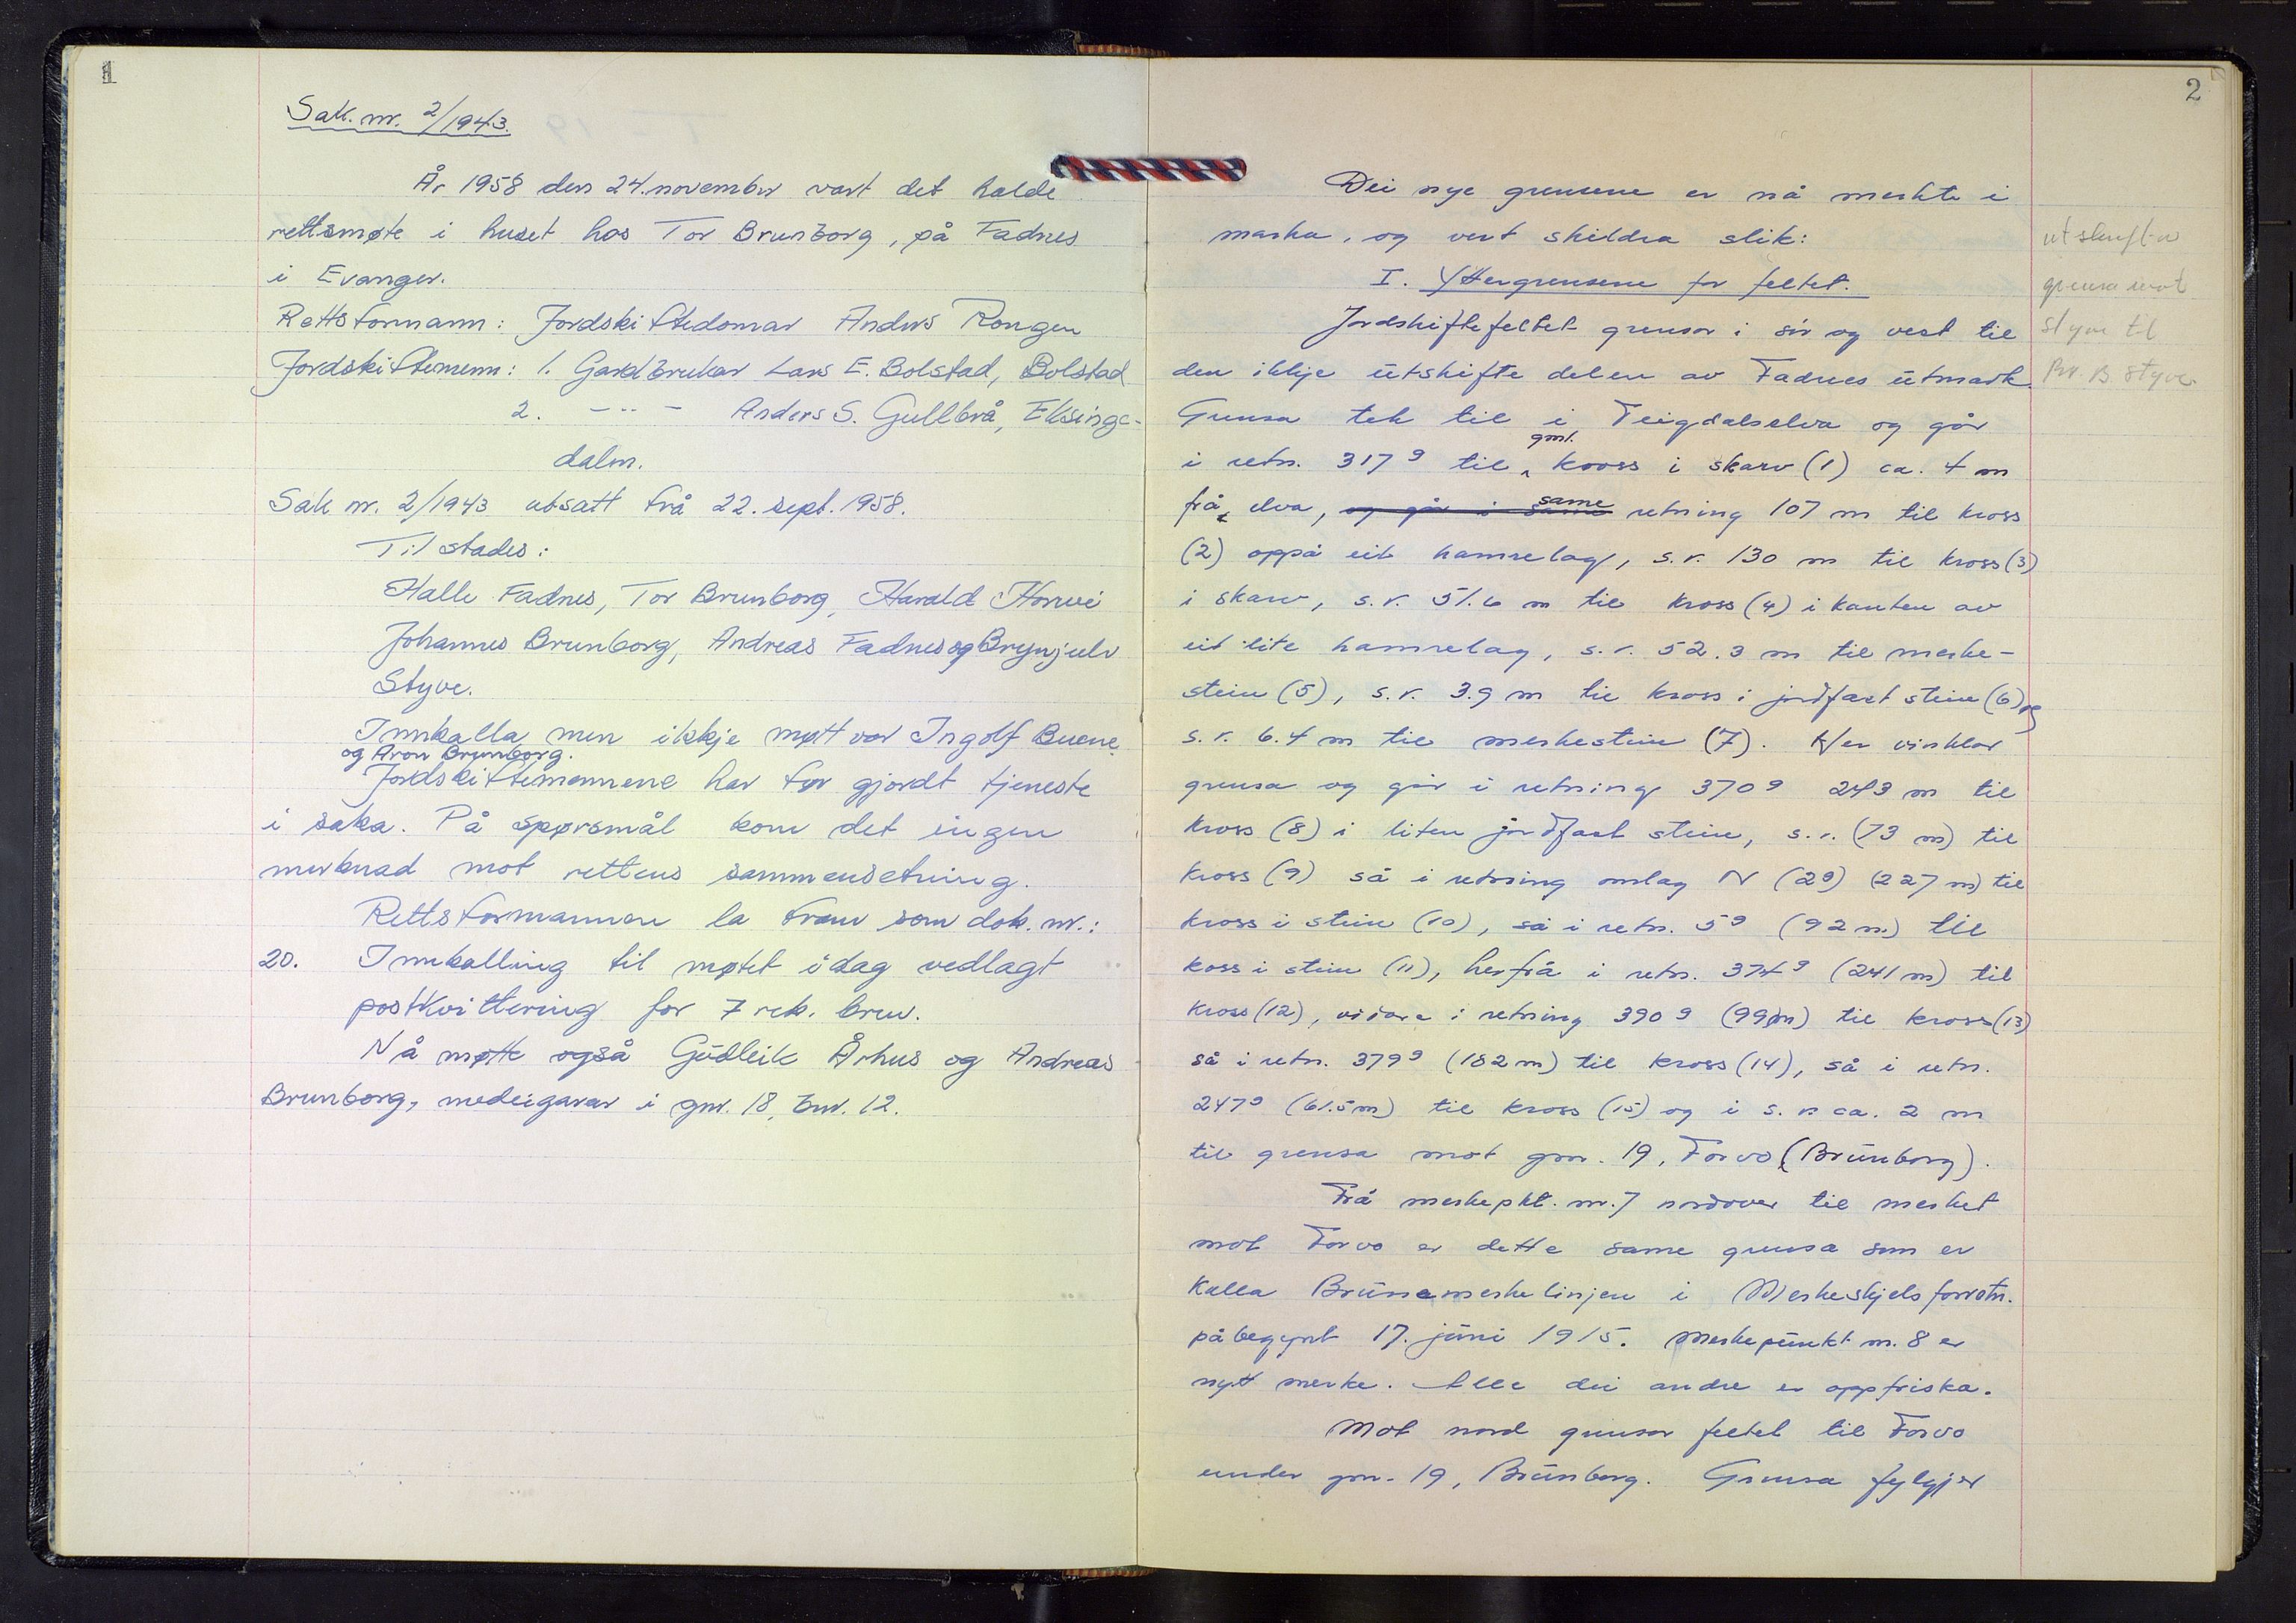 1
Sak. nr. 2/1943.
År 1958 den 24. november vart det halde
rettsmøte i huset hos Tor Brunborg, på Fadnes
i Evanger.
Rettsformann: Jordskiftedomar Anders Rongen
Jordskiftemenn: 1. Gardbrukar Lars E. Bolstad, Bolstad
2. - " - Anders S. Gullbrå, Eksinge-
dalen.
Sak nr. 2/1943 utsatt frå 22. sept. 1958.
Til stades:
Halle Fadnes, Tor Brunborg, Harald Horvei
Johannes Brunborg, Andreas Fadnes og Brynjulv
Styve.
Innkalla men ikkje møtt var Ingolf Buene
og Aron Brunborg.
Jordskiftemennene har før gjordt tjeneste
i saka. På spørsmål kom det ingen
merknad mot rettens sammensetning.
Rettsformannen la fram som dok. nr.:
20. Innkalling til møtet idag vedlagt
postkvittering for 7 rek. brev.
Nå møtte også Gudleik Århus og Andreas
Brunborg, medeigarar i gnr. 18, bnr. 12.
2
Dei nye grensene er nå merkte i
marka, og vert skildra slik:
I. Yttergrensene for feltet.
Jordskiftefeltet grensar i sør og vest til
den ikkje utskifte delen av Fadnes utmark.
Grensa tek til i Teigdalselva og går
i retn. 317 g til gml. kross i skarv (1) ca. 4 m
frå elva, og går i same same retning 107 m til kross
(2) oppå eit hamrelag, s.r. 130 m til kross (3)
i skarv, s.r. 51.6 m til kross (4) i kanten av
eit lite hamrelag, s.r. 52.3 m til merke-
stein (5), s.r. 3.9 m til kross i jordfast stein (6) og
s.r. 6.4 m til merkestein (7). Her vinklar
grensa og går i retning 370 g 243 m til
kross (8) i liten jordfast stein, s.r. (73 m) til
kross (9) så i retning omlag N (2g) (227 m) til
kross i stein (10), så i retn. 5 g (92 m) til
koss i stein (11), herfrå i retn. 374 g (241 m) til
kross (12), vidare i retning 390 g (99 m) til kross (13)
så i retn. 379 g (182 m) til kross (14), så i retn.
247 g (61.5 m) til kross (15) og i s.r. ca. 2 m
til grensa mot gnr. 19, Forvo (Brunborg).
Frå merkepkt. nr. 7 nordover til merket
mot Forvo er dette same grensa som er
kalla Brunemerkelinjen i Merkeskjelsforretn.
påbegynt 17. juni 1915. Merkepunkt nr. 8 er
nytt merke. Alle dei andre er oppfriska.
Mot nord grensar feltet til Forvo
under gnr. 19, Brunborg. Grensa fylgjer
utskrift av
grensa mot
Styve til
Br. B. Styve